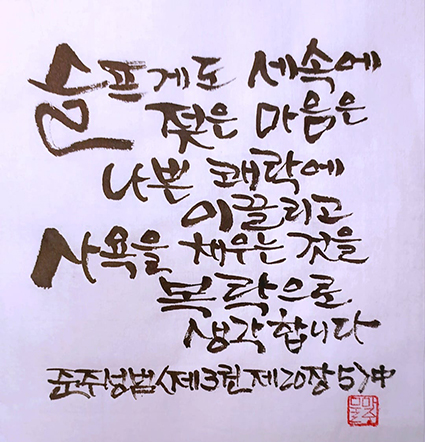 슬프게도 세속에
젖은 마음은
나쁜 쾌락에
이끌리고
사욕을 채우는 것을
복락으로
생각합니다
준주성범<제3권 제20장 5>中